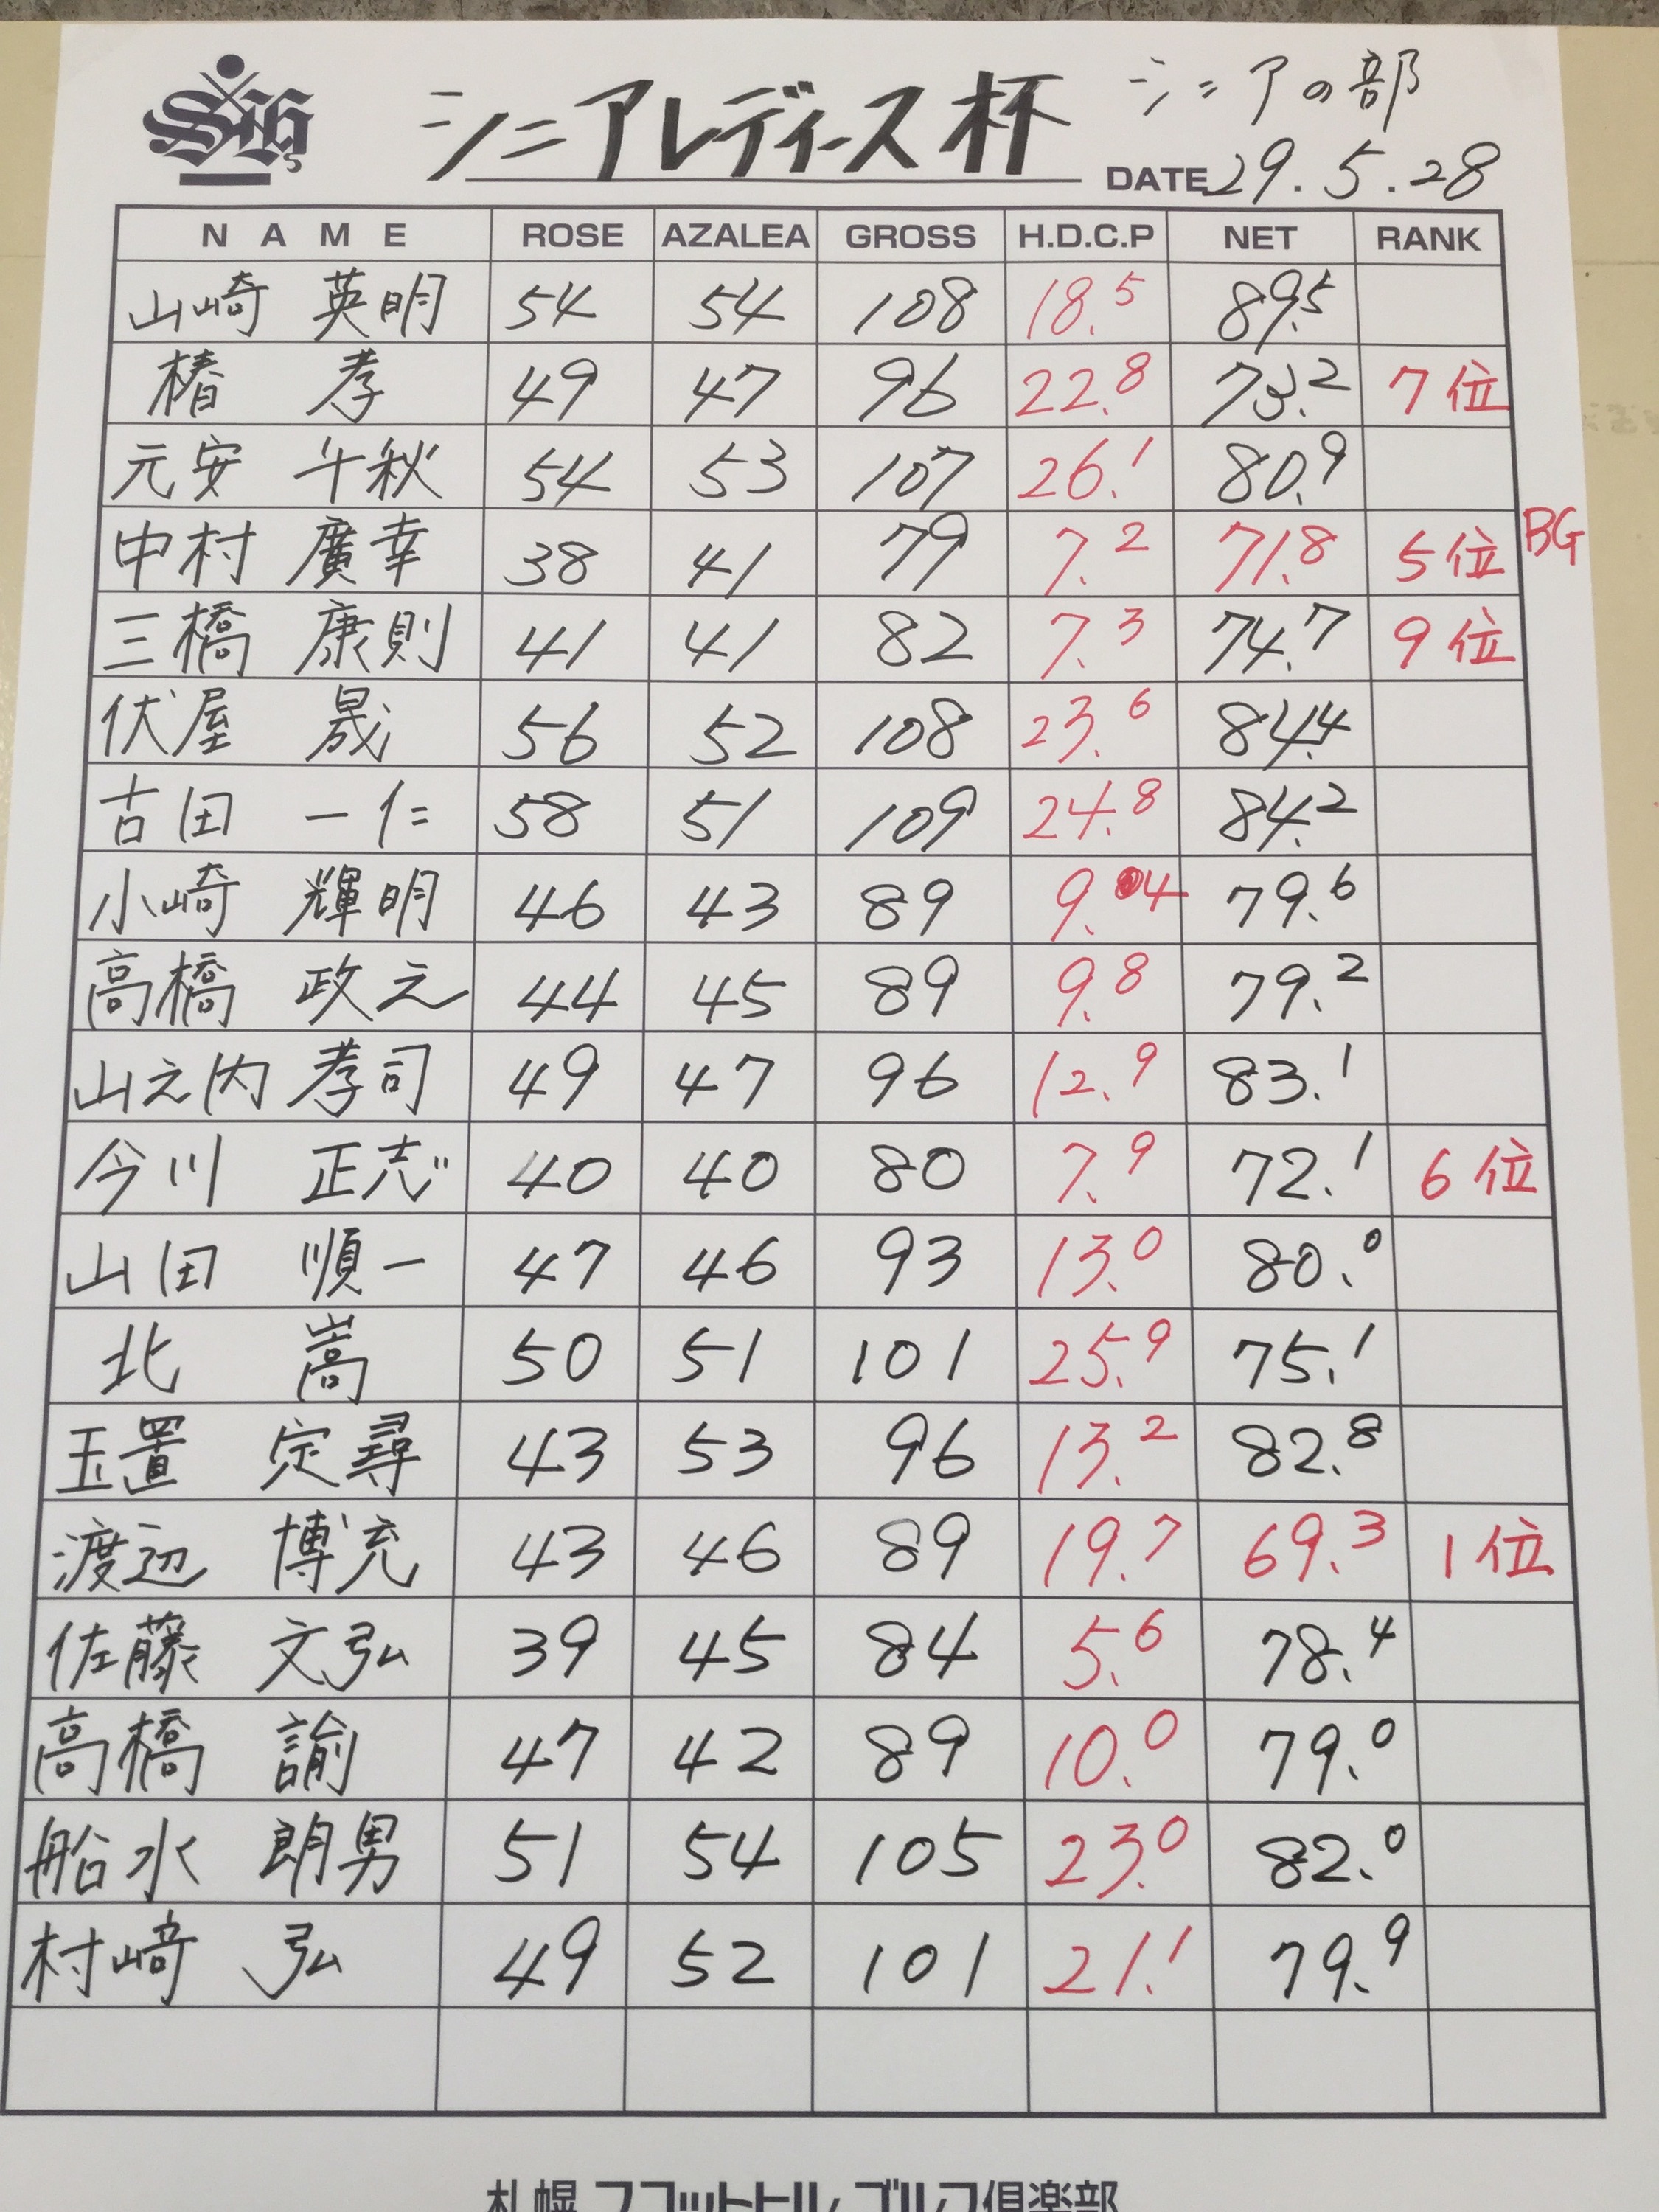 シニアレディース杯 シニアの部
DATE 29.5.28
NAME ROSE AZALEA GROSS H.D.C.P NET RANK
山崎 英明 54 54 108 18.5 89.5
椿 孝 49 47 96 22.8 73.2 7位
元安 千秋 54 53 107 26.1 80.9
中村 廣幸 38 41 79 7.2 71.8 5位 BG
三橋 康則 41 41 82 7.3 74.7 9位
伏屋 晟 56 52 108 23.6 84.4
古田 一仁 58 51 109 24.8 84.2
小崎 輝明 46 43 89 9.4 79.6
高橋 政之 44 45 89 9.8 79.2
山之内 孝司 49 47 96 12.9 83.1
今川 正志 40 40 80 7.9 72.1 6位
山田 順一 47 46 93 13.0 80.0
北 嵩 50 51 101 25.9 75.1
玉置 定尋 43 53 96 13.2 82.8
渡辺 博充 43 46 89 19.7 69.3 1位
佐藤 文弘 39 45 84 5.6 78.4
高橋 諭 47 42 89 10.0 79.0
船水 朗男 51 54 105 23.0 82.0
村﨑 弘 49 52 101 21.1 79.9
札幌 ゴルフ倶楽部